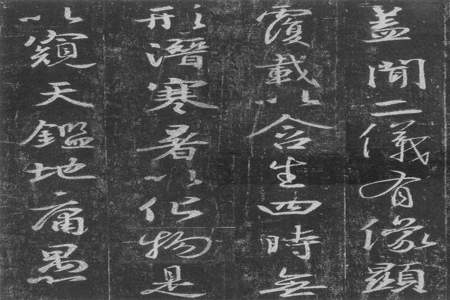 盖聞二儀有像顯
覆載以含生四時無
形潛寒暑以化物是
以窺天鑑地庸愚